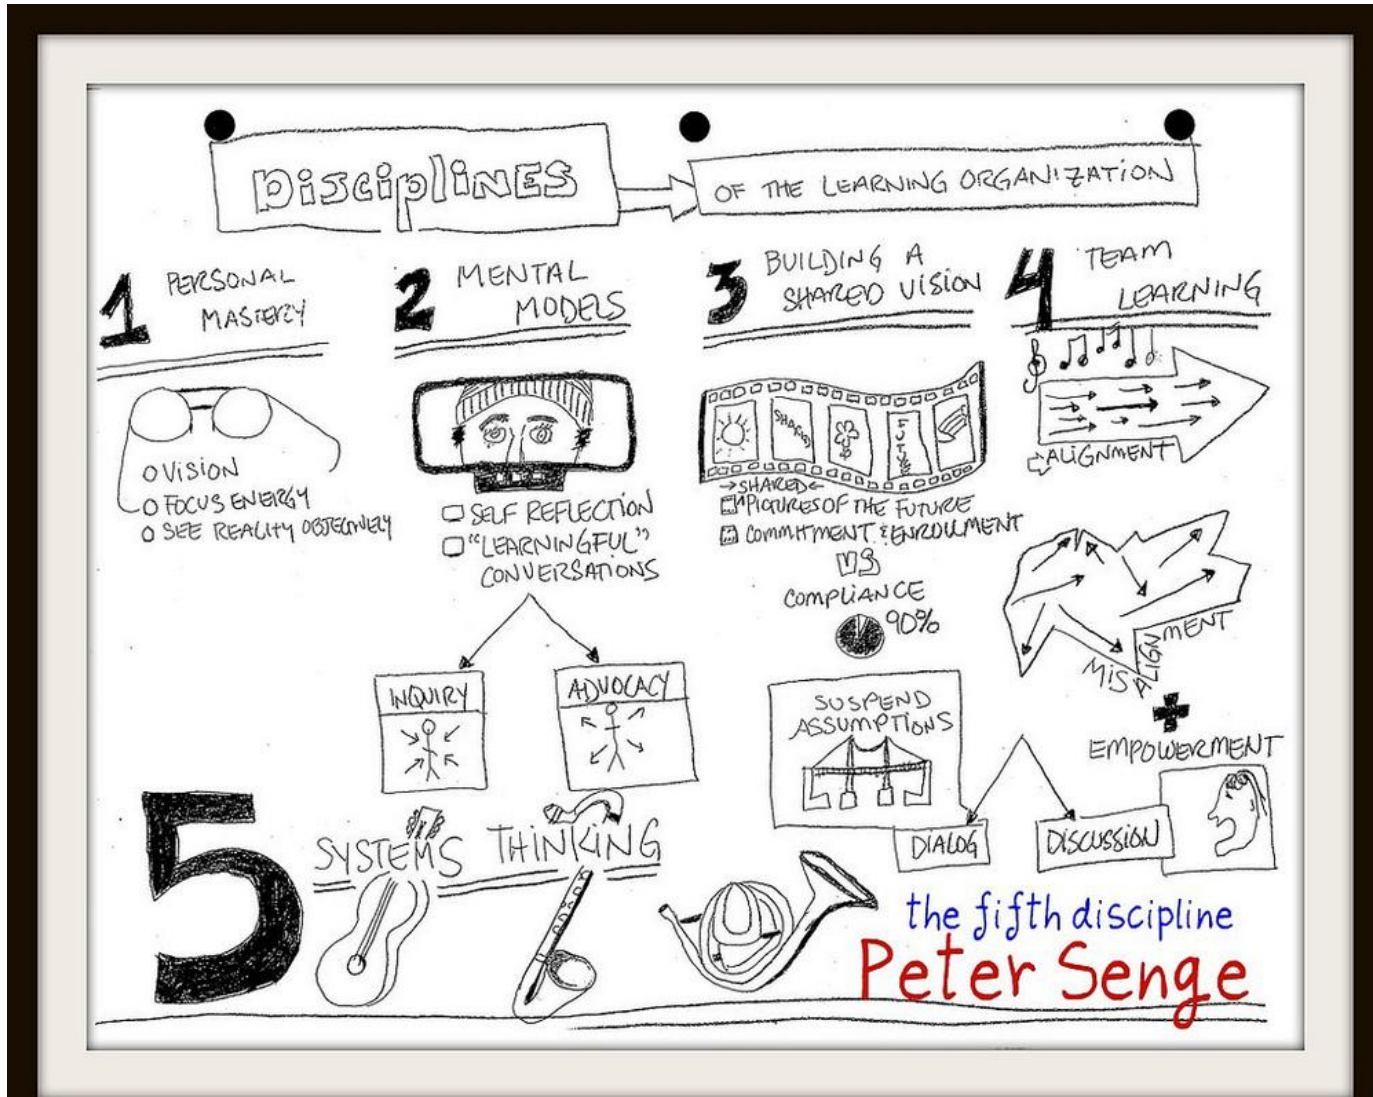 Disciplines
OF THE LEARNING ORGANIZATION
1 PERSONAL
MASTERY
VISION
FOCUS ENERGY
SEE REALITY OBJECTIVELY
2 MENTAL
MODELS
SELF REFLECTION
"LEARNINGFUL"
CONVERSATIONS
INQUIRY
ADVOCACY
3 BUILDING A
SHARED VISION
SHARED
FUTURE
SHARED
PICTURES OF THE FUTURE
COMMITMENT & ENROLLMENT
VS
COMPLIANCE
90%
4 TEAM
LEARNING
ALIGNMENT
MISALIGNMENT
EMPOWERMENT
SUSPEND
ASSUMPTIONS
DIALOG
DISCUSSION
5 SYSTEMS THINKING
the fifth discipline
Peter Senge